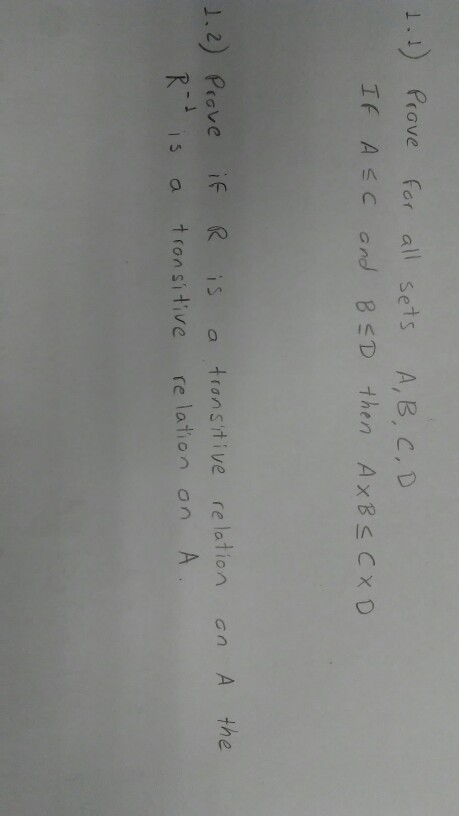 1.1) Prove for all sets A, B, C, D
If A ≤ C and B ≤ D then A x B ≤ C x D
1.2) Prove if R is a transitive relation on A the
R⁻¹ is a transitive relation on A.